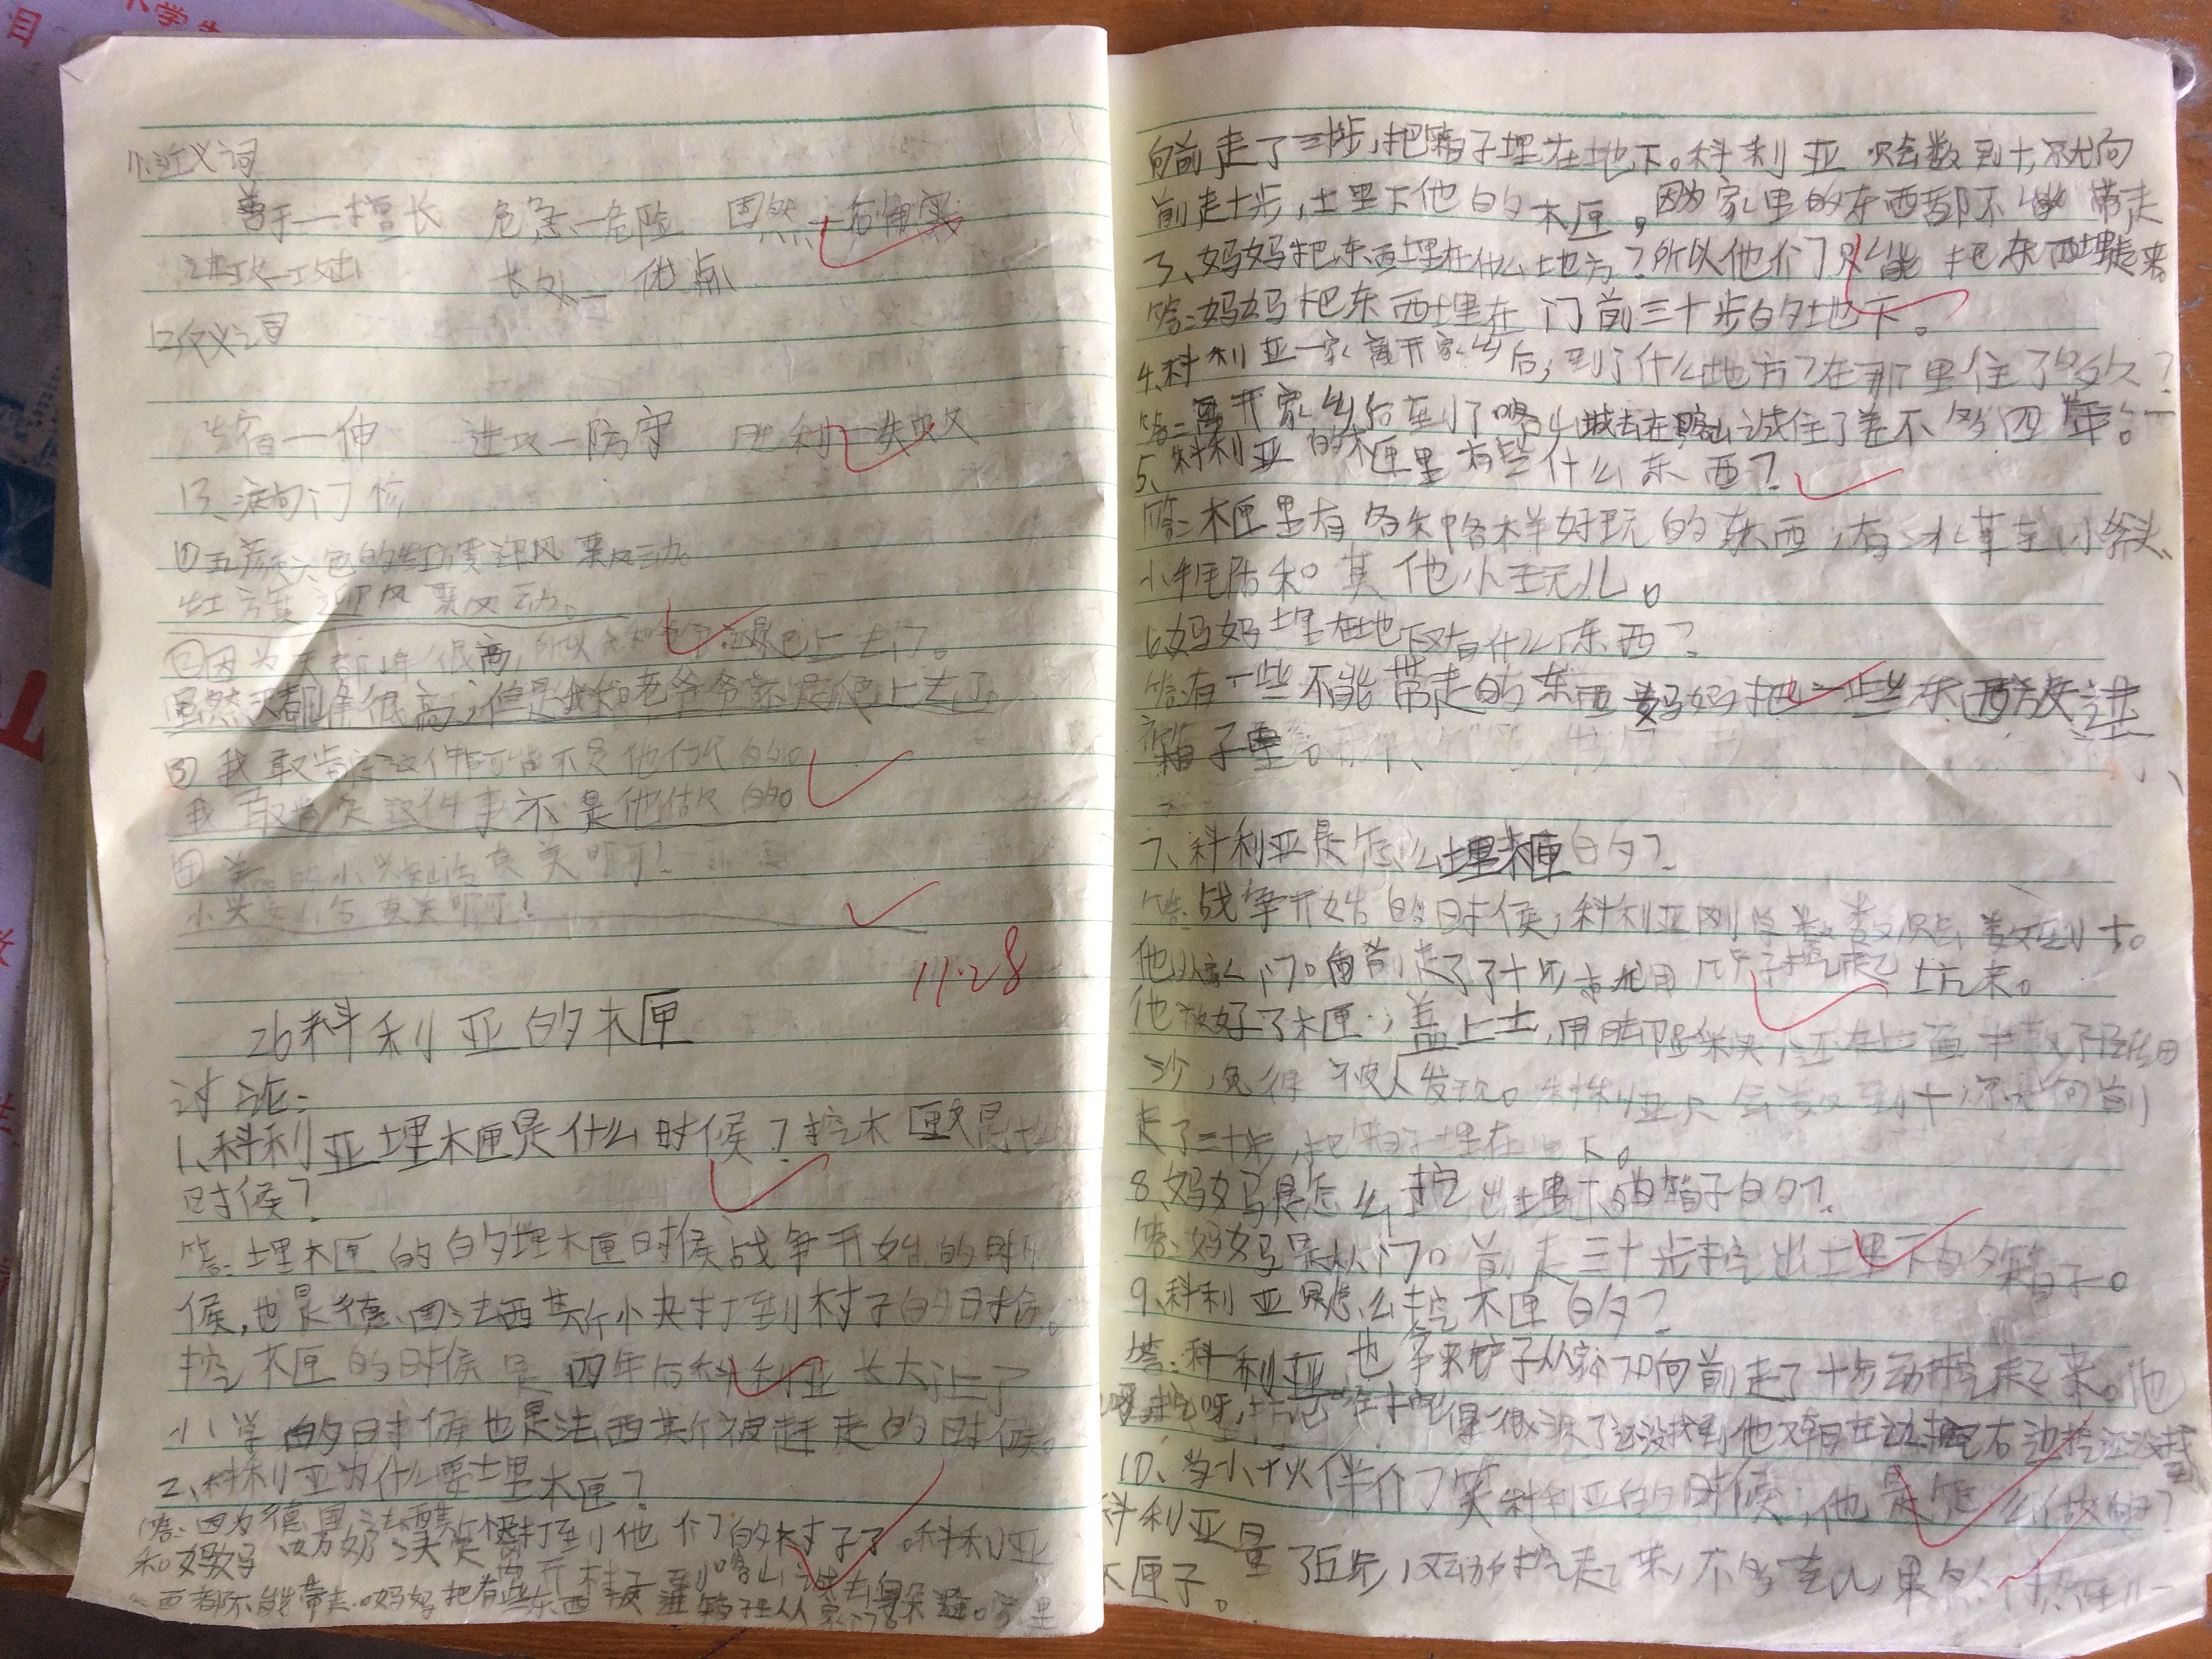 11、近义词
善于一擅长 危急一危险 固然一
进攻一攻击 长处一优点
12反义词
一伸 进攻一防守 胜利一失败
13、
①五颜六色的 迎风飘动。
迎风飘动。
②因为天都峰很高,所以我和爷爷还是爬上去了。
虽然天都峰很高,但是我和老爷爷还是爬上去了。
③我敢肯定这件事可能不是他做的。
我敢肯定这件事不是他做的。
④ 的小 真 呵!
小 真 呵!
11.28
26科利亚的木匣
讨论:
1、科利亚埋木匣是什么时候?挖木匣又是什么
时候?
答:埋木匣的的埋木匣时候战争开始的时
候,也是德国法西斯小夹打到村子的时候。
挖木匣的时候是四年后科利亚长大让了
小学的时候也是法西斯被赶走的时候。
2、科利亚为什么要埋木匣?
答:因为德国法西斯 打到他们的村子了。科利亚
和妈妈 奶 离开村子到喀山城去 家里
西都不能带走。妈妈把有些东西 箱子里从家门口
向前走了三十步,把箱子埋在地下。科利亚只会数到十,就向
前走十步,埋下他的木匣。因为家里的东西都不能带走
3、妈妈把东西埋在什么地方?所以他们只能把东西埋起来。
答:妈妈把东西埋在门前三十步的地下。
4、科利亚一家离开家乡后,到了什么地方?在那里住了多久?
答:离开家乡后到了喀山城去在喀山诚住了差不多四年。
5、科利亚的木匣里有些什么东西?
答:木匣里有各种各样好玩的东西,有冰车、小 头、
小 和其他小玩儿。
6、妈妈埋在地下又有什么东西?
答:有一些不能带走的东西妈妈把一些东西放进
箱子里。
7、科利亚是怎么埋木匣的?
答:战争开始的时候,科利亚刚学数数只会数到十。
他从家门口向前走了了十步就用铲子挖起坑来。
他放好了木匣,盖上土,用脚踩实,还在上面撒了
沙,免得被人发现。科利亚只会数到十,妈妈向前
走了三十步,把箱子埋在地下。
8、妈妈是怎么挖出埋下的箱子的?
答:妈妈是从门口前走三十步挖出土里下的箱子。
9、科利亚是怎么挖木匣的?
答:科利亚也拿来铲子从家门口向前走了十步动挖起来。他
挖呀,挖呀,坑 挖得很深了还没找到他又朝左边挖右边挖还没找
10、当小伙伴们笑科利亚的时候,他是怎么做的?
科利亚量了五步,又动挖起来,不多会儿果然
木匣子。